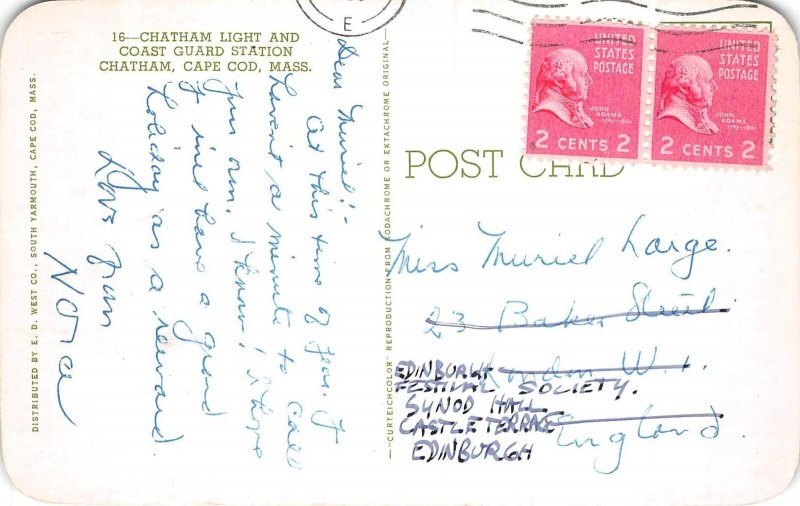 16—CHATHAM LIGHT AND
COAST GUARD STATION
CHATHAM, CAPE COD, MASS.
DISTRIBUTED BY E. D. WEST CO., SOUTH YARMOUTH, CAPE COD, MASS.
Dear Muriel!-
At this time of year.
havent a minute to call
your own. I know! I hope
have a good
holiday as a reward.
Love from
NORA
"CURTEICHCOLOR" REPRODUCTION FROM KODACHROME OR EKTACHROME ORIGINAL
E
UNITED
STATES
POSTAGE
JOHN
ADAMS
1797-1801
2 CENTS 2
UNITED
STATES
POSTAGE
JOHN
ADAMS
1797-1801
2 CENTS 2
POST CARD
Miss Muriel Large.
23 Baker Street.
London W.1.
England.
EDINBURGH
FESTIVAL SOCIETY.
SYNOD HALL
CASTLE TERRACE
EDINBURGH